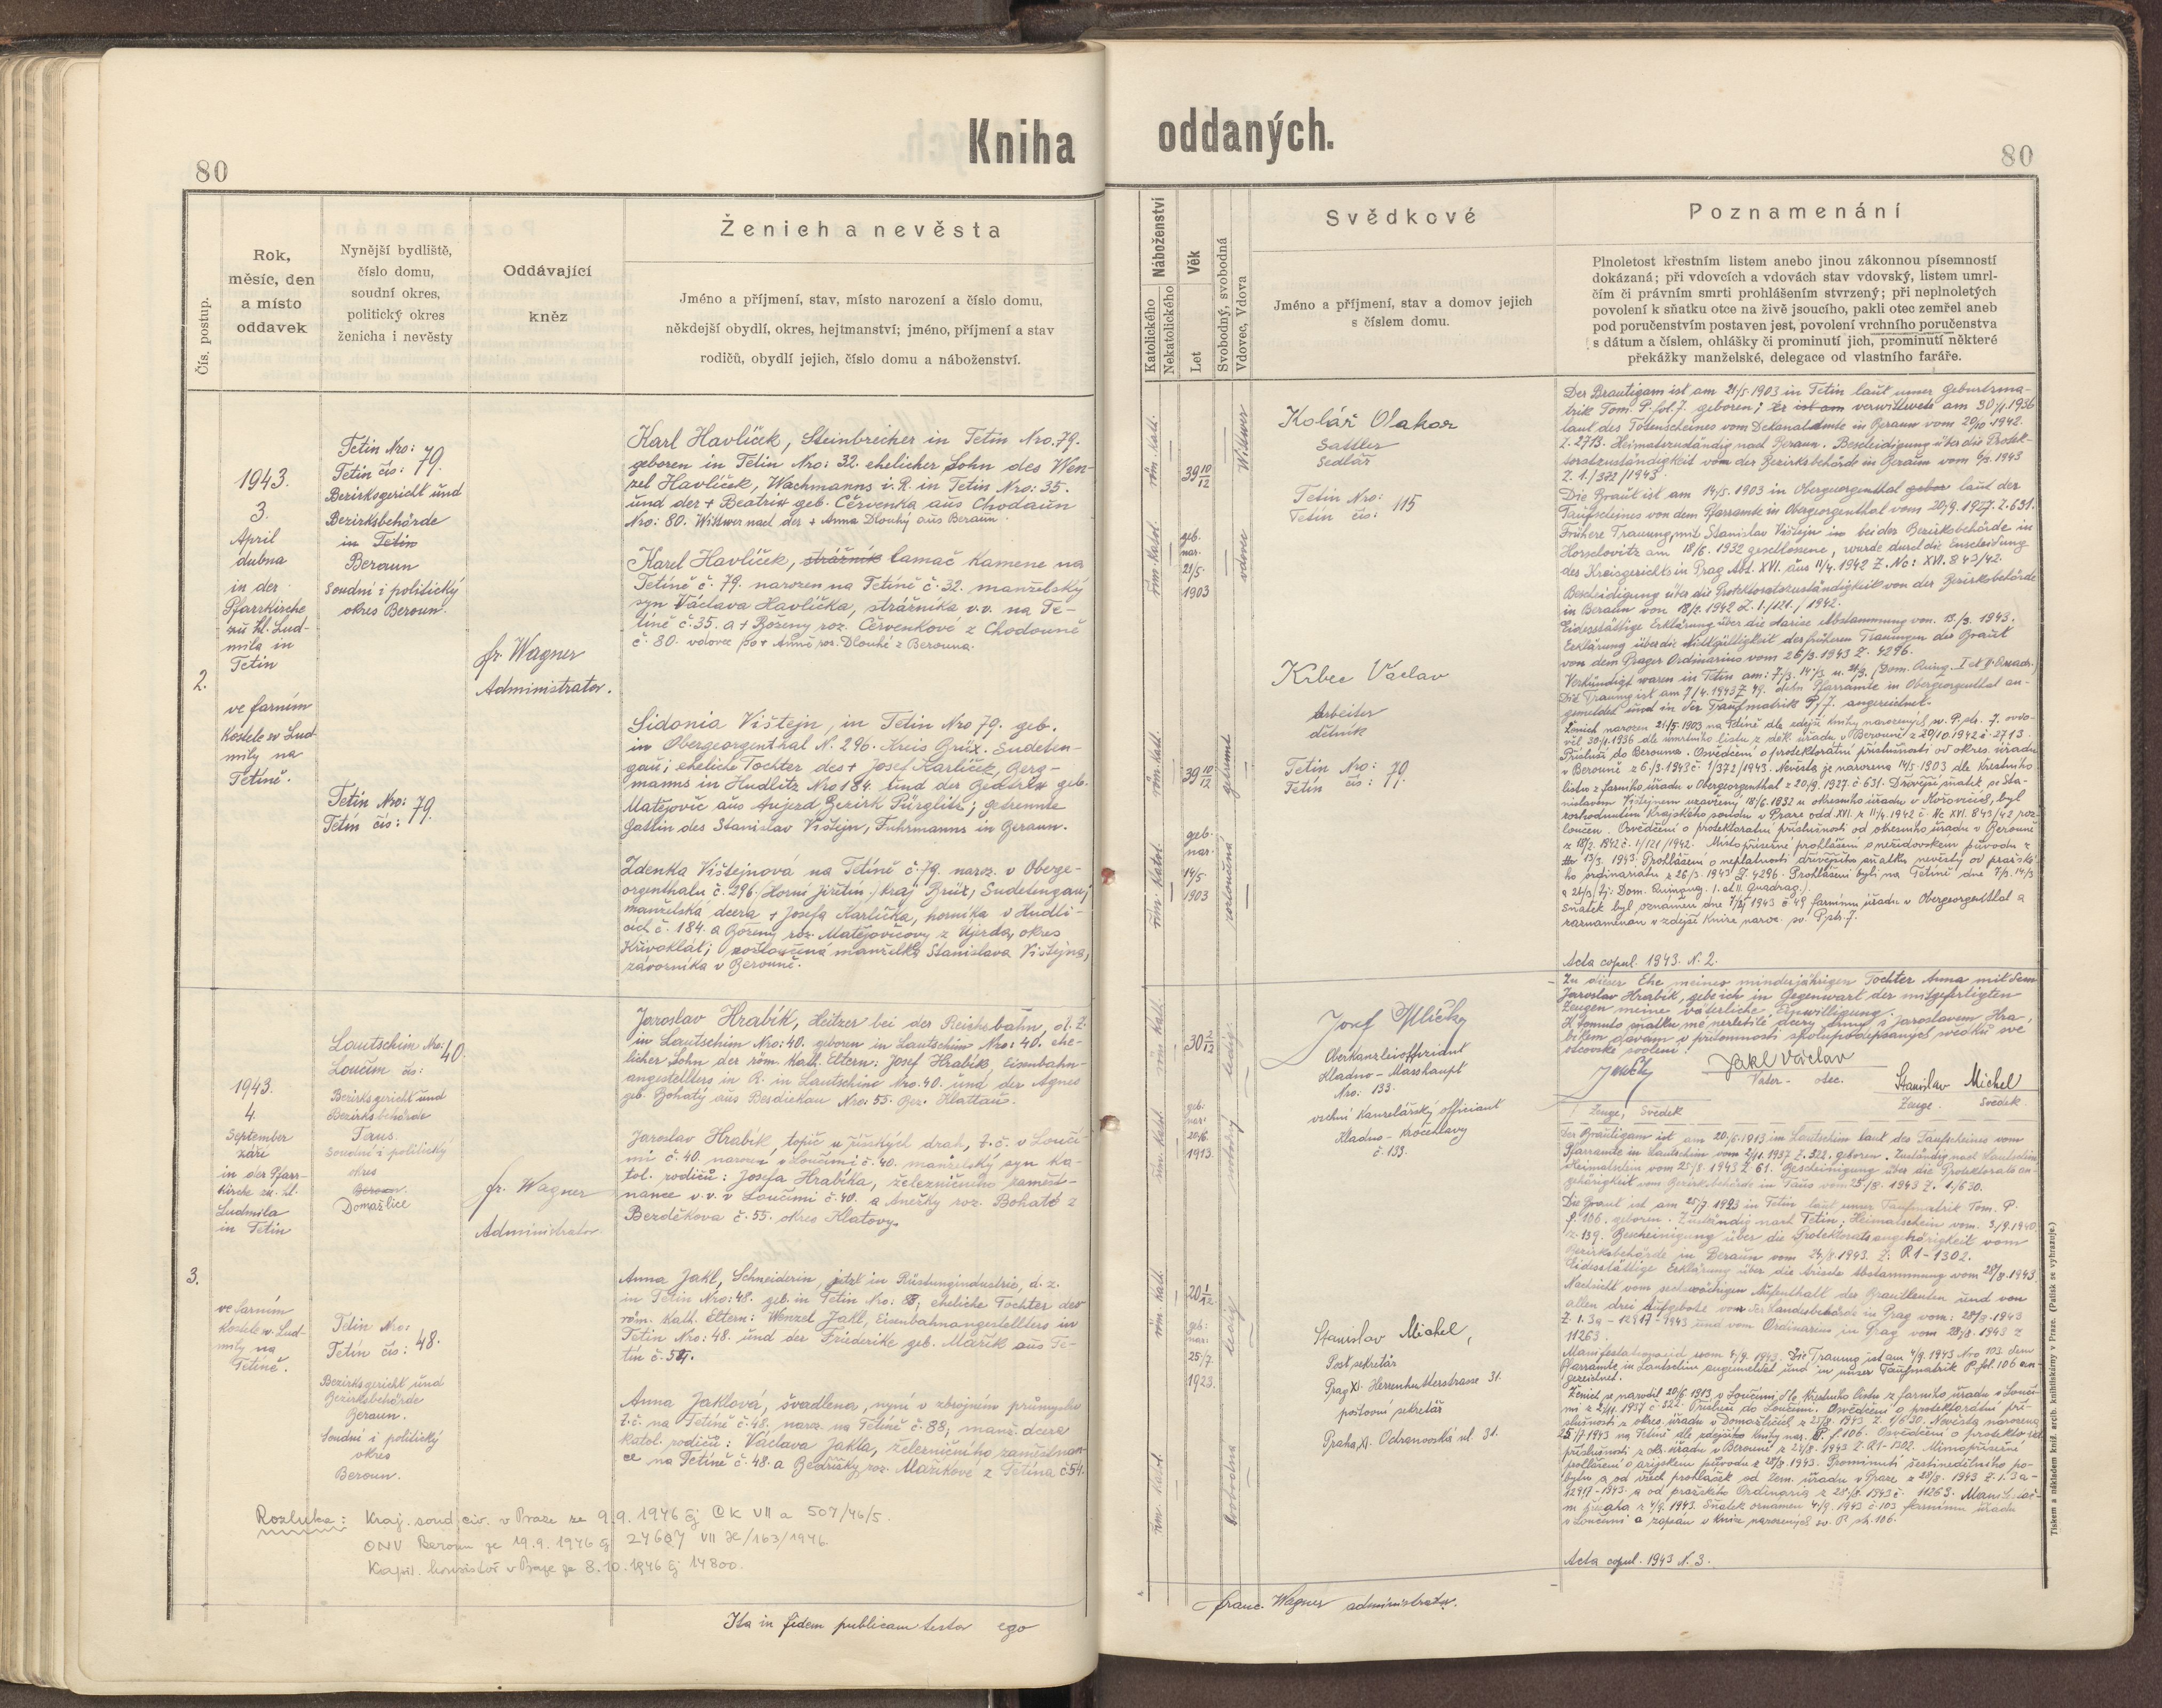 Kniha
oddaných.
80
80
Čís. postup.
Rok,
měsíc, den
a místo
oddavek
Nynější bydliště,
číslo domu,
soudní okres,
politický okres
ženicha i nevěsty
Oddávající
kněz
Ženich a nevěsta
Jméno a příjmení, stav, místo narození a číslo domu,
někdejší obydlí, okres, hejtmanství; jméno, příjmení a stav
rodičů, obydlí jejich, číslo domu a náboženství.
Katolického Náboženství
Nekatolického
Let Věk
Svobodný, svobodná
Vdovec, Vdova
Svědkové
Jméno a příjmení, stav a domov jejich
s číslem domu.
Poznamenání
Plnoletost křestním listem anebo jinou zákonnou písemností
dokázaná; při vdovcích a vdovách stav vdovský, listem umrl-
čím či právním smrti prohlášením stvrzený; při neplnoletých
povolení k sňatku otce na živě jsoucího, pakli otec zemřel aneb
pod poručenstvím postaven jest, povolení vrchního poručenstva
s dátum a číslem, ohlášky či prominutí jich, prominutí některé
překážky manželské, delegace od vlastního faráře.
2.
1943.
3.
April
dubna
in der
Pfarrkirche
zu hl. Lud-
mila in
Tetin
ve farním
kostele sv Lud-
mily na
Tetíně.
Tetin Nro: 79.
Tetín čís: 79.
Bezirksgericht und
Bezirksbehörde
in Tetin
Beroun
Soudní i politický
okres Beroun.
Tetin Nro: 79.
Tetín čís: 79.
fr. Wagner
Administrator.
Karl Havlíček, Steinbrecher in Tetin Nro. 79.
geboren in Tetin Nro: 32. ehelicher Sohn des Wen-
zel Havlíček, Wachmanns i. R. in Tetin Nro: 35.
und der + Beatrix geb. Červenka aus Chodaun
Nro: 80. Wittwer nach der + Anna Dlouhý aus Beraun.
Karel Havlíček, strážník lamač kamene na
Tetíně č. 79. narozen na Tetíně č. 32. manželský
syn Václava Havlíčka, strážníka v.v. na Te-
tíně č. 35. a + Boženy roz. Červenkové z Chodouně
č. 80. vdovec po + Anně roz. Dlouhé z Berouna.
Sidonia Vištejn, in Tetin Nro 79. geb.
in Obergeorgenthal N. 296. Kreis Brüx. Sudeten-
gau; eheliche Tochter des + Josef Karlíček, Berg-
manns in Hudlitz Nro 184. und der Beatrix geb.
Matějovič aus Aujezd Bezirk Pürglitz; getrennte
Gattin des Stanislav Vištejn, Fuhrmanns in Beraun.
Zdenka Vištejnová na Tetíně č. 79. naroz. v Oberge-
orgenthalu č. 296 /Horní Jiřetín/ kraj Brüx, Sudetengau,
manželská dcera + Josefa Karlíčka, horníka v Hudli-
cích č. 184. a Boženy roz. Matějovičovy z Újezda, okres
Křivoklát; rozloučená manželka Stanislava Vištejna,
závozníka v Berouně.
röm. kath.
řím. katol.
39 10/12
geb.
nar.
21/5.
1903
Wittwer
vdovec
röm. kath.
řím. katol.
39 10/12
geb.
nar.
14/5
1903
getrennt
rozloučená
Kolář Otakar
Sattler
Sedlář
Tetin Nro: 115
Tetín čís: 115
Krbec Václav
Arbeiter
dělník
Tetin Nro: 79.
Tetín čís: 79.
Der Bräutigam ist am 21/5. 1903 in Tetin laut unser Geburtsma-
trik Tom. P. fol. 7. geboren; Er ist am verwittwete am 30/1. 1936
laut des Totenscheines vom Dekanalamte in Beraun vom 20/10 1942.
Z. 2713. Heimatszuständig nach Beraun. Bescheidigung über die Protek-
toratszuständigkeit vom der Bezirksbehörde in Beraun vom 6/3. 1943
Z. 1./372/1943.
Die Braut ist am 14/5. 1903 in Obergeorgenthal gebor laut des
Taufscheines von dem Pfarramte in Obergeorgenthal vom 20/9. 1927. Z. 631.
Frühere Trauung, mit Stanislav Vištejn in bei der Bezirksbehörde in
Horschowitz am 18/6. 1932 geschlossene, wurde durch die Enscheidung
des Kreisgerichts in Prag Abt. XVI. aus 11/4. 1942 Z. Nc: XVI. 843/42.
Bescheidigung über die Protektoratszuständigkeit von der Bezirksbehörde
in Beraun von 18/2. 1942 Z. 1./121./1942.
Eidesstättige Erklärung über die Arische Abstammung von. 13./3. 1943.
Erklärung über die Nichtgültigkeit der früheren Trauungen der Braut
von dem Prager Ordinarius vom 26/3. 1943 Z. 4296.
Verkündigt waren in Tetin am: 7/3. 14/3 u. 21/3. (Dom. Quing. I et II. Quadr.)
Die Traung ist am 7/4. 1943 Z 49. dem Pfarramte in Obergeorgenthal an-
gemeldet und in der Taufmatrik P/7. angezeichnet.
Ženich narozen 21/5. 1903 na Tetíně dle zdejší knihy narozených sv. P. str. 7. ovdo-
věl 30/1. 1936 dle úmrtního listu z dek. úřadu v Berouně z 20/10. 1942 č. 2713.
Příslušní do Berouna. Osvědčení o protektorátní příslušnosti od okres. úřadu
v Berouně z 6./3. 1943 č. 1/372/1943. Nevěsta je narozena 14/5. 1903 dle křestního
listu z farního úřadu v Obergeorgenthal z 20/9. 1927. č 631. Dřívější sňatek, se Sta-
nislavem Vištejnem uzavřený 18/6. 1932 u okresního úřadu v Hořovicích, byl
rozhodnutím Krajského soudu v Praze odd XVI. z 11/4. 1942 č. Nc XVI. 843/42 roz-
loučen. Osvědčení o protektorátní příslušnosti od okresního úřadu v Berouně
z 18/2. 1942 č. 1/121/1942. Místopřísežné prohlášení o nežidovském původu z
13/3. 1943. Prohlášení o neplatnosti dřívějšího sňatku nevěsty od pražské-
ho ordinariátu z 26/3. 1943 Z. 4296. Prohlášení byli na Tetíně dne 7/3. 14/3
a 21/3 /tj: Dom. Quinquag. I. et II. Quadrag.).
Sňatek byl oznámen dne 7/4 1943 č 49 farnímu úřadu v Obergeorgenthal a
zaznamenán v zdejší knize naroz. sv. P str. 7.
Acta copul. 1943. N. 2.
3.
1943.
4.
September
září
in der Pfarr-
kirche zu hl.
Ludmila
in Tetin
ve farním
kostele sv. Lud-
mily na
Tetíně.
Lautschim Nro: 40.
Loučim čís:
Bezirksgericht und
Bezirksbehörde
Taus.
Soudní i politický
okres
Beroun.
Domažlice
Tetin Nro: 48.
Tetín čís: 48.
Bezirksgericht und
Bezirksbehörde
Beraun.
Soudní i politický
okres
Beroun.
fr. Wagner
Administrator.
Jaroslav Hrabík, Heitzer bei der Reichsbahn, d. Z.
in Lautschim Nro: 40. geboren in Lautschim Nro: 40. ehe-
licher Sohn der röm. kath. Eltern: Josef Hrabík, Eisenbahn-
angestellters in R. in Lautschim Nro. 40. und der Agnes
geb. Bohatý aus Besdiekau Nro: 55. Bez. Klattau.
Jaroslav Hrabík, topič u říšských drah, t. č. v Louči-
mi č. 40. narozen v Loučimi č. 40. manželský syn ka-
tol. rodičů: Josefa Hrabíka, železničního zaměst-
nance v. v. v Loučimi č. 40. a Anežky roz. Bohaté z
Bezděkova č. 55. okres Klatovy.
Anna Jakl, Schneiderin, jetzt in Rüstungindustrie, d. z.
in Tetin Nro: 48. geb. in Tetin Nro: 88; eheliche Tochter der
röm. kath. Eltern: Wenzel Jakl, Eisenbahnangestellters in
Tetin Nro: 48. und der Friederike geb. Mařík aus Te-
tin č. 54.
Anna Jaklová, švadlena, nyní v zbrojním průmyslu
t. č. na Tetíně č. 48. naroz. na Tetíně č. 88; manž. dcera
katol. rodičů: Václava Jakla, železničního zaměstnan-
ce na Tetíně č. 48. a Bedřišky roz. Maříkové z Tetína č 54.
Rozluka: Kraj. soud civ. v Praze ze 9.9. 1946 čj Ck VII a 507/46/5.
ONV Beroun ze 19.9. 1946 čj 27607 VII H/163/1946.
Kapit. konsistoř v Praze ze 8.10. 1946 čj 14800.
röm. kath.
řím. katol.
30 2/12
geb:
nar:
20/6.
1913.
ledig
svobodný
röm. kath.
řím. katol.
20 1/12
geb:
nar:
25/7.
1923.
ledig
svobodná
Josef
Oberkanzleioffiziant
Kladno - Marshaupt
Nro: 133.
vrchní kancelářský officiant
Kladno - Kročehlavy
č. 133.
Stanislav Michel,
Postsekretär
Prag XI. Herrenhutterstrasse 31.
poštovní sekretář
Praha XI. Ochranovská ul. 31.
Zu dieser Ehe meines minderjährigen Tochter Anna mit dem
Jaroslav Hrabík, gebe ich in Gegenwart der mitgefertigten
Zeugen meine väterliche Einwilligung.
K tomuto sňatku mé nezletilé dcery Anny s Jaroslavem Hra-
bíkem dávám v přítomnosti spolupodepsaných svědků své
otcovské svolení!
Jakl Václav
Vater - otec.
Stanislav Michel
Zeuge, Svědek
Zeuge. Svědek.
Der Bräutigam ist am 20/6. 1913 im Lautschim laut des Taufscheines vom
Pfarramte in Lautschim vom 2/11. 1937 Z. 322. geboren. Zuständig nach Lautschim
Heimatschein vom 25/8. 1943 Z. 61. Bescheinigung über die Protektoratsan-
gehörigkeit vom Bezirksbehörde in Taus vom 25/8. 1943 Z. 1/630.
Die Braut ist am 25/7 1923 in Tetin laut unser Taufmatrik Tom. P.
f. 106. geboren. Zuständig nach Tetin; Heimatschein vom. 3/9. 1940
z. 139. Bescheinigung über die Protektoratsangehörigkeit vom
Bezirksbehörde in Beraun vom 24/8. 1943. Z. R1-1302.
Eidesstättige Erklärung über die Arische Abstammung vom 28/8. 1943.
Nachsicht vom sechswöchigen Aufenthalt der Brautleuten und von
allen drei Aufgebote vom der Landesbehörde in Prag vom: 28/8. 1943
Z. 1. 3a - 12917-1943 und vom Ordinarius in Prag vom 28/8. 1943 Z
11263.
Manifestationseid vom 4/9. 1943. Die Traung ist am 4/9. 1943 Nro 103. dem
Pfarramte in Lautschim angemeldet und in unser Taufmatrik P. fol. 106 an-
gezeichnet.
Ženich se narodil 20/6. 1913 v Loučimi, dle křestního listu z farního úřadu v Louči-
mi z 2/11. 1937 č. 322. Příslušní do Loučimi. Osvědčení o protektorátní pří-
slušnosti z okres. úřadu v Domažlicích z 25/8. 1943 Z. 1/630. Nevěsta narozena
25/7 1943 na Tetíně dle zdejšího knihy nar. P. f. 106. Osvědčení o protektorát
příslušnosti z okr. úřadu v Berouně z 24/8. 1943 Z. R1-1302. Mimopřísežní
prohlášení o arijském původu z 28/8. 1943. Prominutí šestinedělního po-
bytu a od všech prohlášek od zem. úřadu v Praze z 28/8. 1943 Z. 1. 3a-
12917-1943. a od pražského Ordinaria z 28/8. 1943 č. 11263.
z 4/9. 1943. Sňatek oznámen 4/9. 1943 č. 103 farnímu úřadu
v Loučimi a zapsán v knize narozených sv. P. str. 106.
Acta copul. 1943 N. 3.
Ita in fidem publicam testor ego
franc. Wagner administrator.
Tiskem a nákladem kníž. arcib. knihtiskárny v Praze. (Patisk se vyhrazuje.)